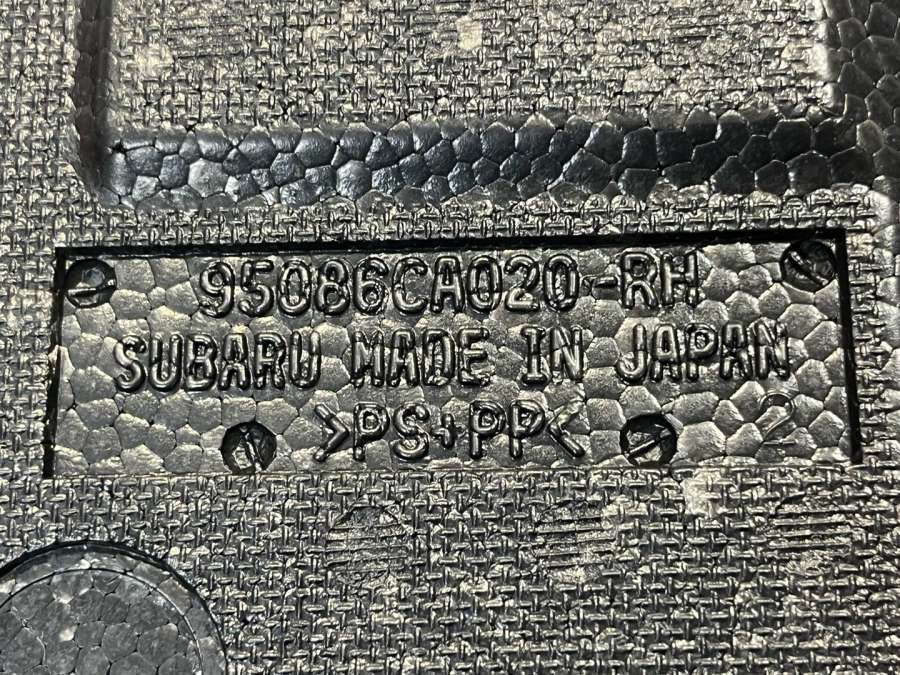 95086CA020-RH
SUBARU MADE IN JAPAN
>PS+PP<
2